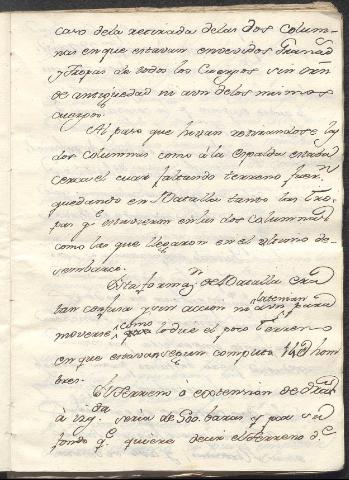 caso dela retirada delas dos colum-
nas en que estavan enbevidos Granad.s
y Tropas de todos los Cuerpos sin orn
de antiguedad ni aun delos mismos
cuerpos.
Al paso que hivan retirandose las
dos columnas como á la espalda estava
cerca el mar faltando terreno fuer.n
quedando en Batalla tanto las Tro-
pas q.e estuvieron en las dos columnas
como las que llegaron en el ultimo de-
sembarco.
Esta formaz.n de Batalla era
tan confusa y sin accion no tenian para
moverse, como todo el poco Terreno
en que estavan segun computo hom
bres.
El Terreno ó extension de dra
á izq.da seria de 500 baras y por su
fondo q.e quiere decir el terreno d.e